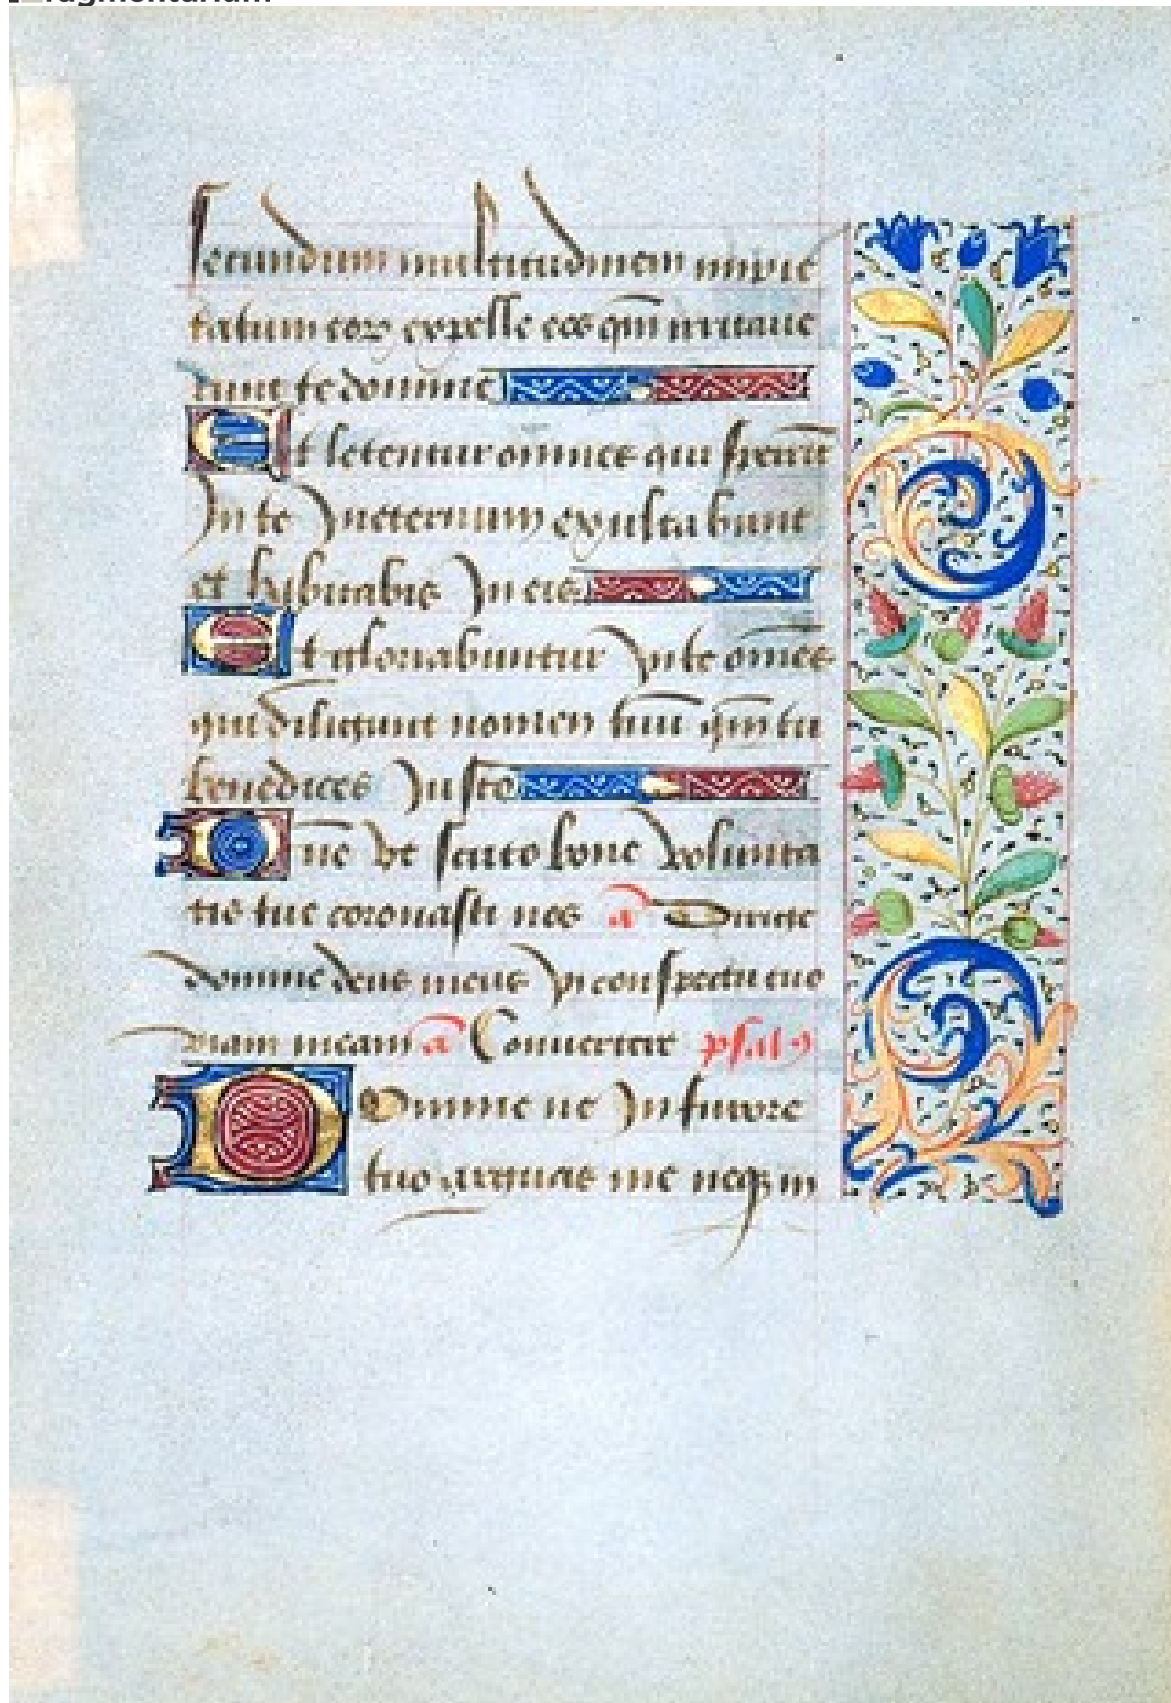 fragmentarium
secundum multitudinem impie
tatum eorꝝ expelle eos qm̄ irritaue
runt te domine
Et letentur omnes qui sperāt
In te Ineternum exultabunt
et habitabis Ineis
Et gloriabuntur Inte om̄es
qui diligunt nomen tuū qm̄ tu
benedices Iusto
Dn̄e vt scuto bone volunta
tis tue coronasti nos a͞ Dirige
domine deus meus In conspectu tuo
viam meam a͞ Conuertere psalꝰ
Domine ne In furore
tuo arguas me neqꝫ in